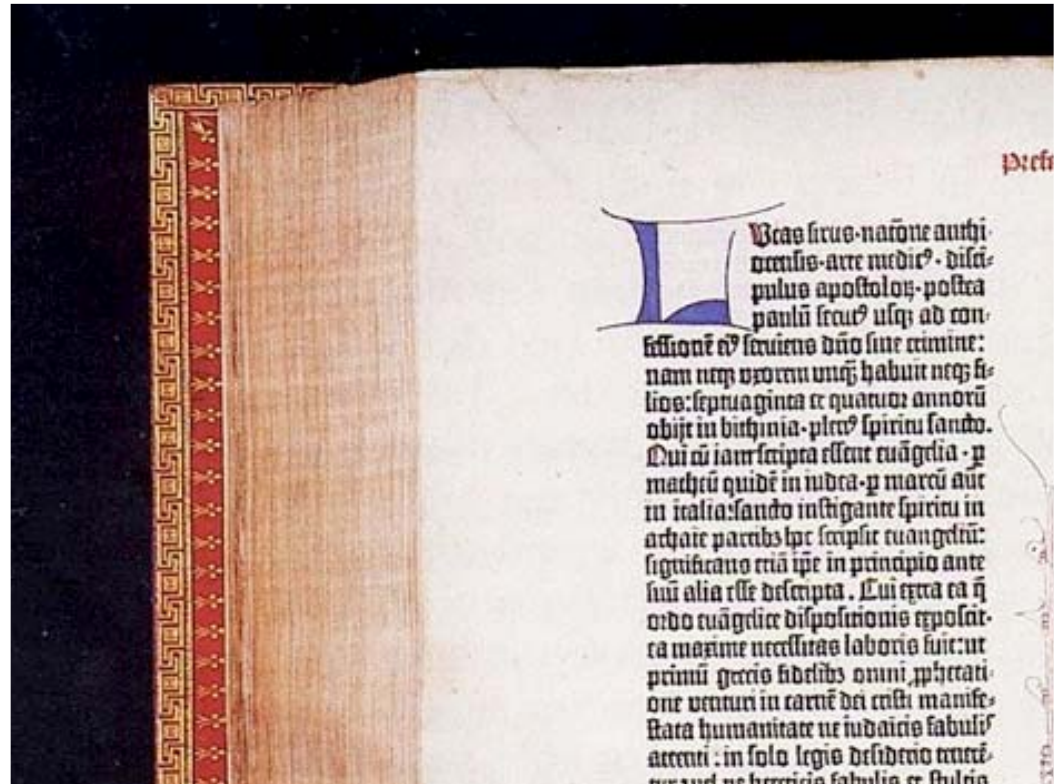 Prefa
LUcas sirus·natōne anthi-
ocensis·arte medicꝰ·disci-
pulus apostoloꝝ·postea
paulū secutꝰ usqꝫ ad con-
fessionē eiꝰ serviens dño sine crimine:
nam neqꝫ uxorem unqꝫ̄ habuit neqꝫ fi-
lios: septuaginta et quatuor annorū
obijt in bithinia·plenꝰ spiritu sancto.
Qui cū iam scripta essent euāgelia·ꝑ
matheū quidē in iudea·ꝑ marcū aūt
in italia: sancto instigante spiritu in
achaie partibꝫ hoc scripsit euangeliū:
significans etiā ip̄e in principio ante
suū alia esse descripta. Cui extra ea q̄
ordo euāgelice dispositionis exposcit-
ea maxime necessitas laboris fuit: ut
primū grecis fidelibꝫ omni ꝓphetati-
one venturi in carnē dei cristi manife-
stata humanitate ne iudaicis fabulis
attenti: in solo legis desiderio tenerē-
ne hereticis fabulis et stultis